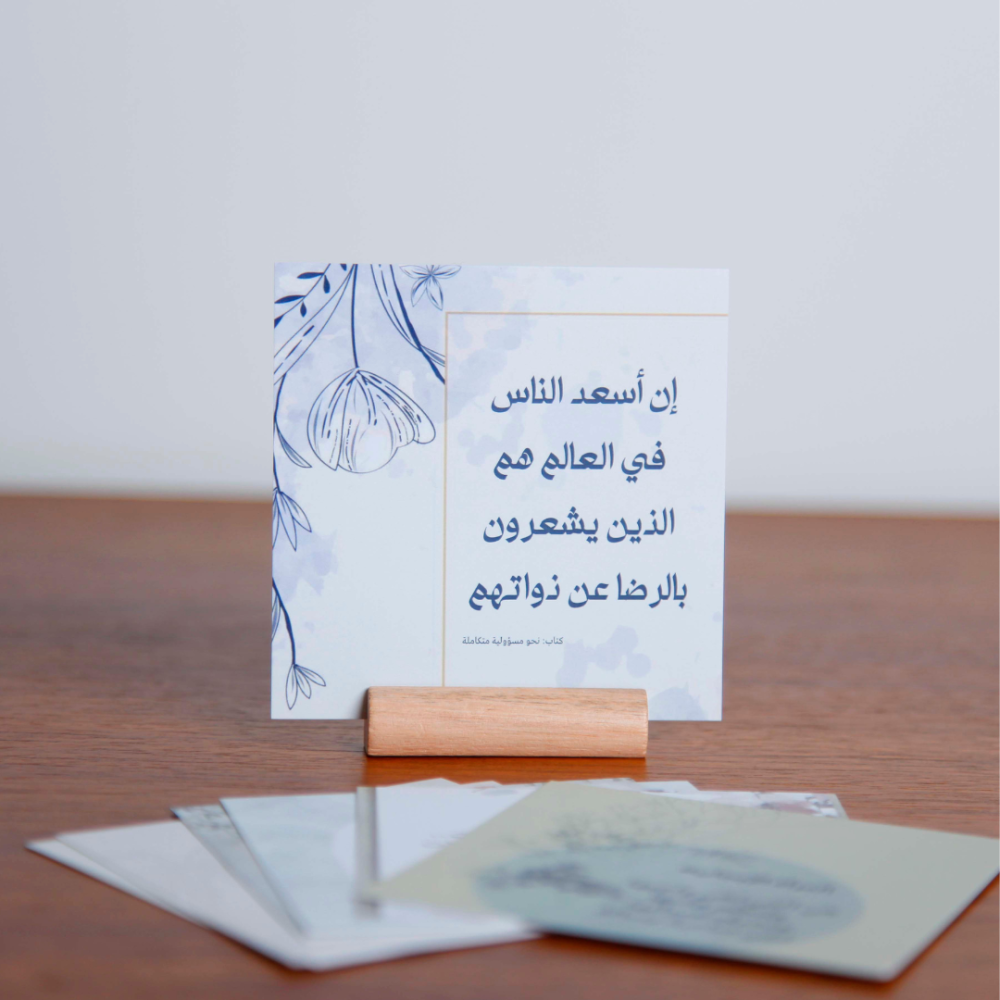 إن أسعد الناس
في العالم هم
الذين يشعرون
بالرضا عن ذواتهم
كتاب: نحو مسؤولية متكاملة